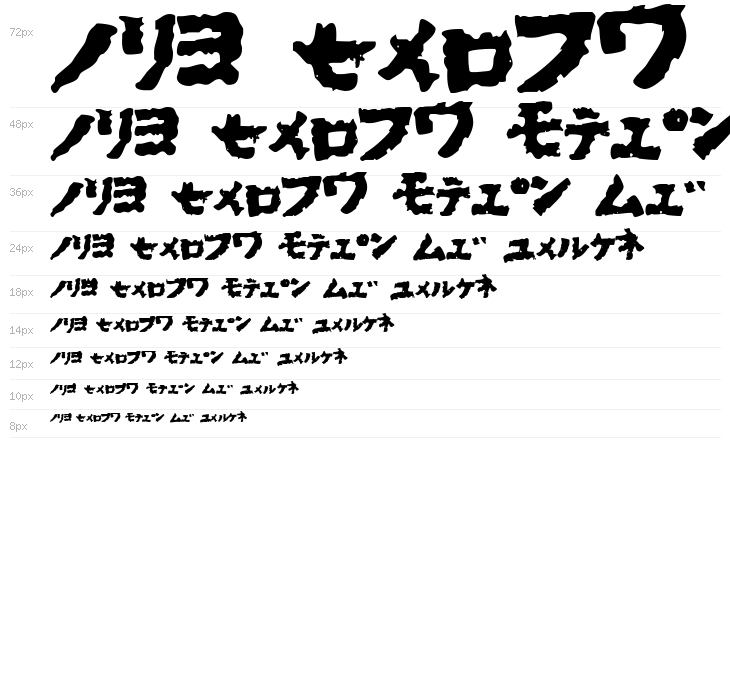 72px ノリヨ セメロフワ
48px ノリヨ セメロフワ モテユ゜ン
36px ノリヨ セメロフワ モテユ゜ン ムエ゛
24px ノリヨ セメロフワ モテユ゜ン ムエ゛ ユメルケネ
18px ノリヨ セメロフワ モテユ゜ン ムエ゛ ユメルケネ
14px ノリヨ セメロフワ モテユ゜ン ムエ゛ ユメルケネ
12px ノリヨ セメロフワ モテユ゜ン ムエ゛ ユメルケネ
10px ノリヨ セメロフワ モテユ゜ン ムエ゛ ユメルケネ
8px ノリヨ セメロフワ モテユ゜ン ムエ゛ ユメルケネ